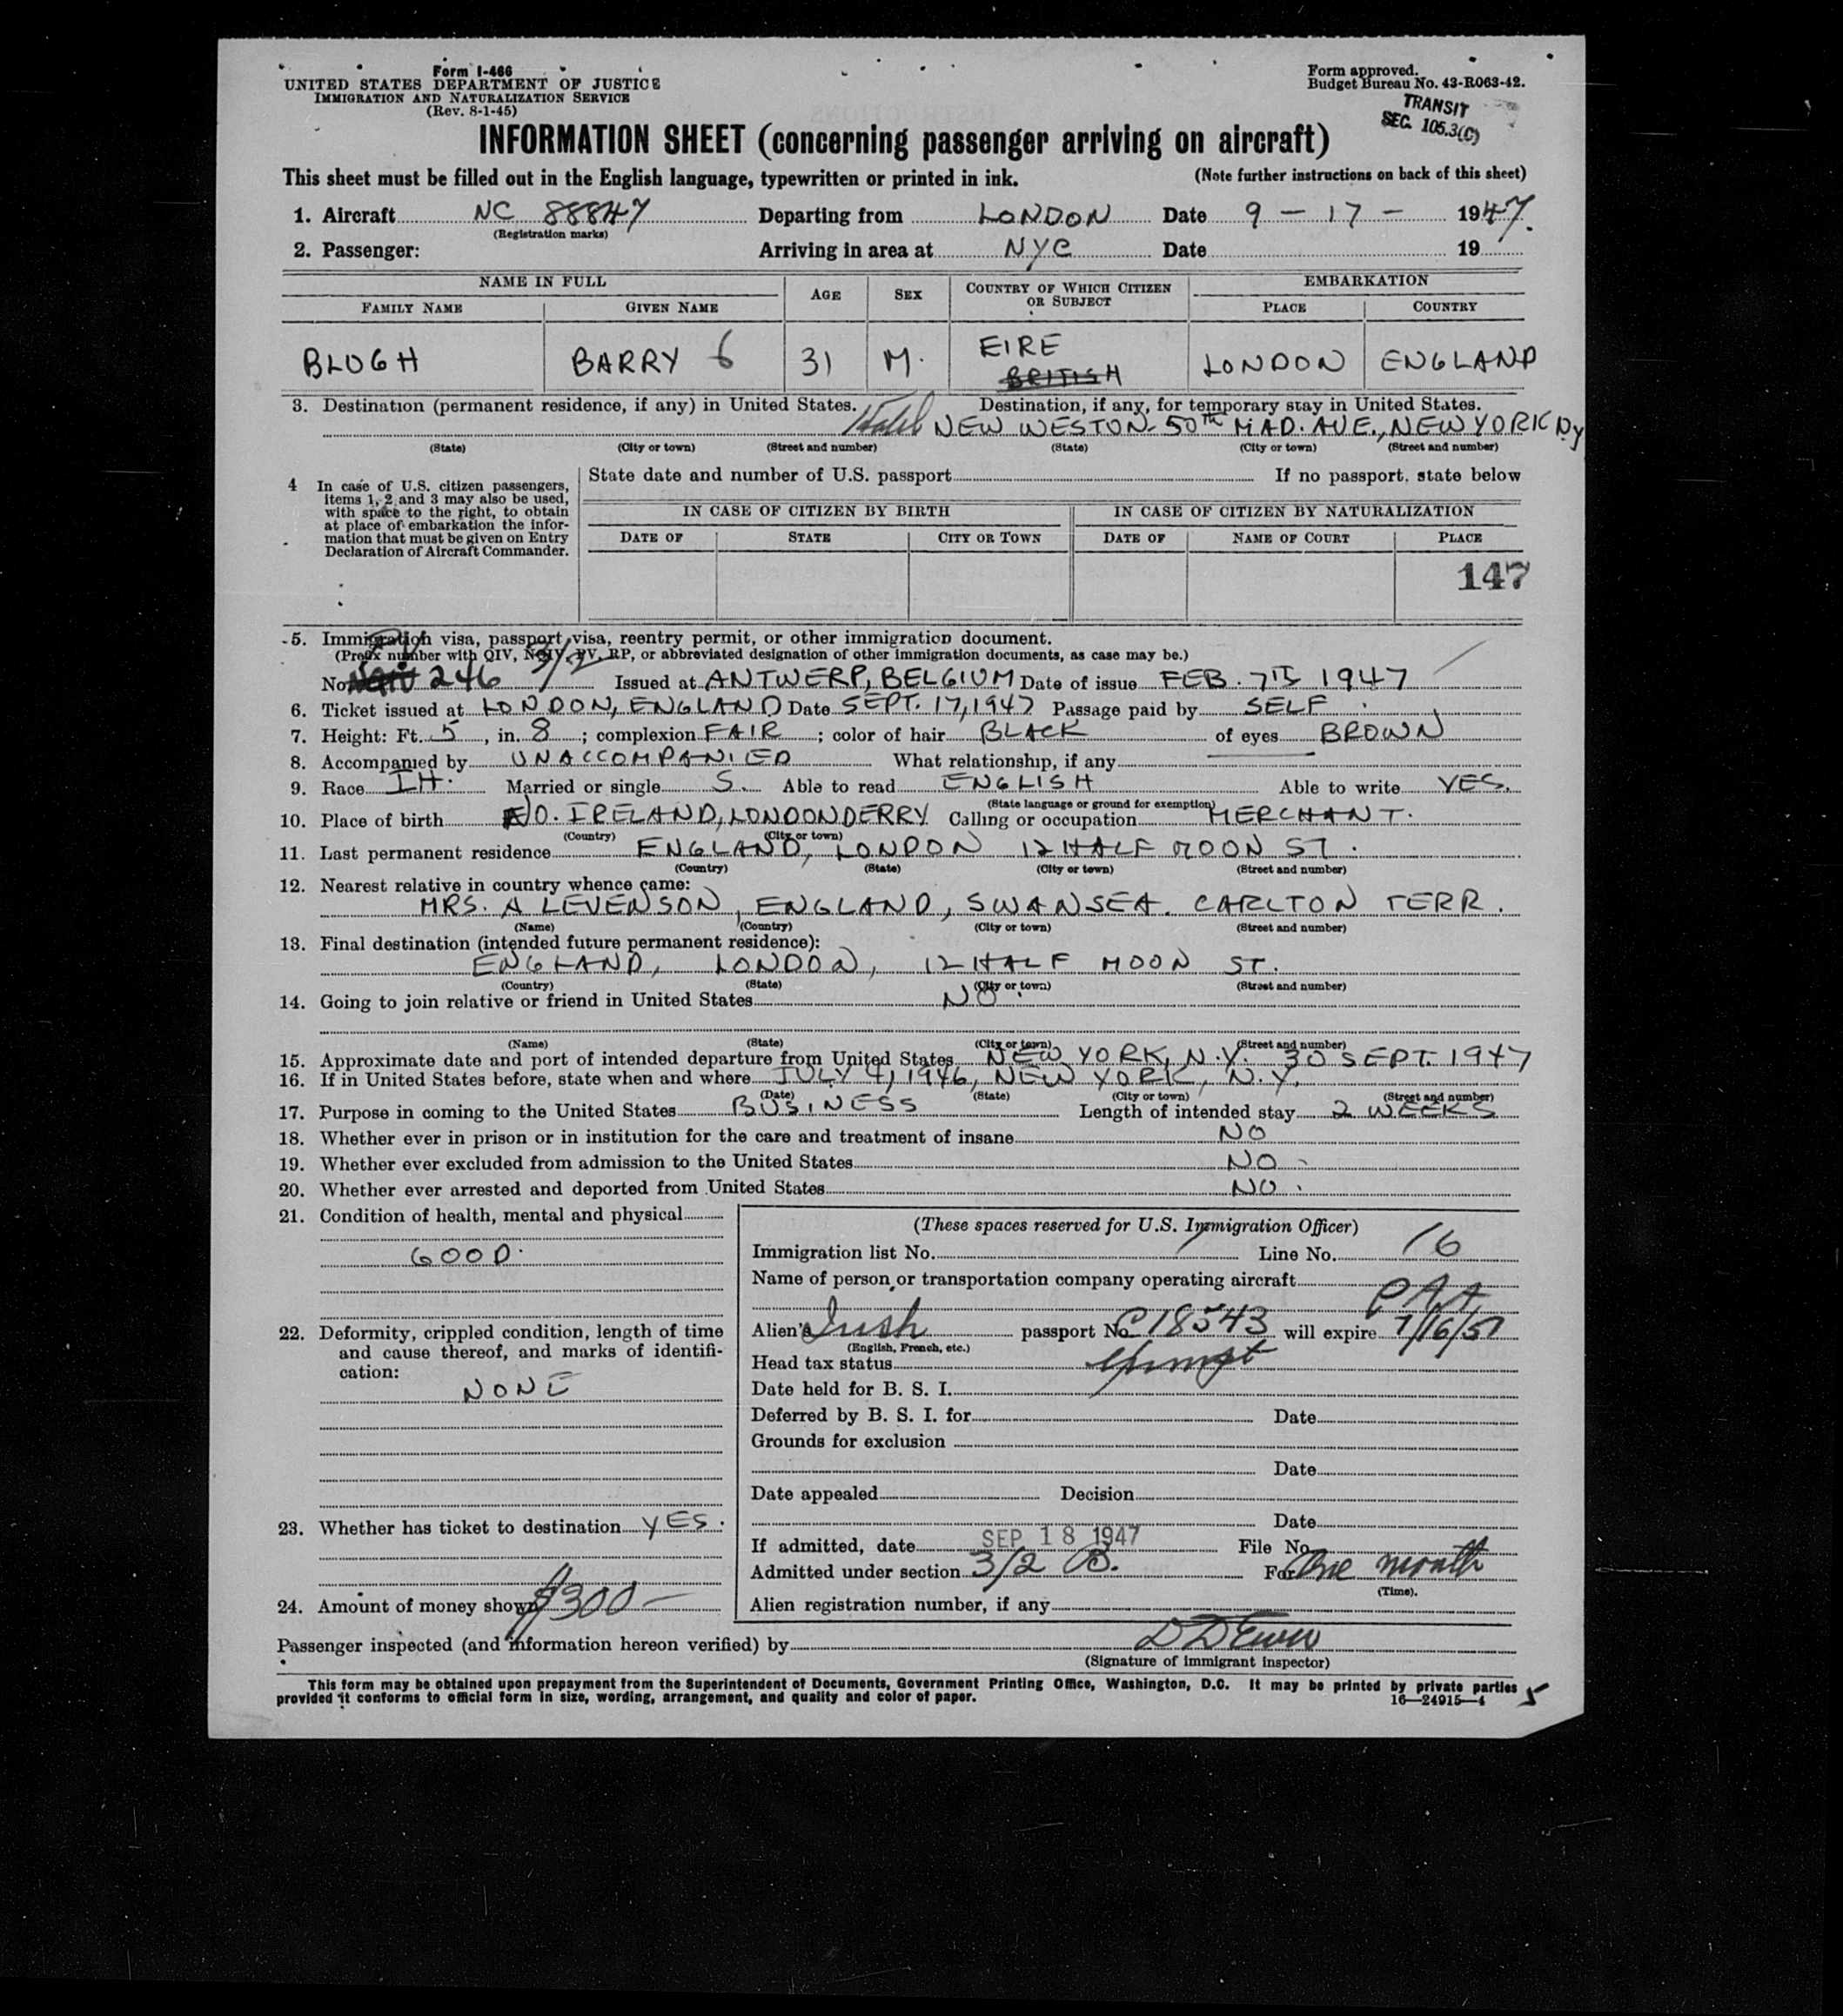 Form I-466
UNITED STATES DEPARTMENT OF JUSTICE
IMMIGRATION AND NATURALIZATION SERVICE
(Rev. 8-1-45)
Form approved.
Budget Bureau No. 43-R063-42.
TRANSIT
SEC. 105.3(C)
INFORMATION SHEET (concerning passenger arriving on aircraft)
This sheet must be filled out in the English language, typewritten or printed in ink. (Note further instructions on back of this sheet)
1. Aircraft NC 88847 Departing from LONDON Date 9 - 17 - 1947.
(Registration marks)
2. Passenger: Arriving in area at NYC Date 19
NAME IN FULL AGE SEX COUNTRY OF WHICH CITIZEN OR SUBJECT EMBARKATION
FAMILY NAME GIVEN NAME PLACE COUNTRY
BLOGH BARRY 6 31 M. EIRE LONDON ENGLAND
BRITISH
3. Destination (permanent residence, if any) in United States. Destination, if any, for temporary stay in United States.
Hotel NEW WESTON - 50TH MAD. AVE., NEW YORK NY
(State) (City or town) (Street and number) (State) (City or town) (Street and number)
4 In case of U.S. citizen passengers, items 1, 2 and 3 may also be used, with space to the right, to obtain at place of embarkation the information that must be given on Entry Declaration of Aircraft Commander.
State date and number of U.S. passport If no passport, state below
IN CASE OF CITIZEN BY BIRTH IN CASE OF CITIZEN BY NATURALIZATION
DATE OF STATE CITY OR TOWN DATE OF NAME OF COURT PLACE
147
5. Immigration visa, passport visa, reentry permit, or other immigration document.
(Prefix number with QIV, NQIV, PV, RP, or abbreviated designation of other immigration documents, as case may be.)
No. 246 3/2 Issued at ANTWERP, BELGIUM Date of issue FEB. 7TH 1947
6. Ticket issued at LONDON, ENGLAND Date SEPT. 17, 1947 Passage paid by SELF
7. Height: Ft. 5, in. 8; complexion FAIR; color of hair BLACK of eyes BROWN
8. Accompanied by UNACCOMPANIED What relationship, if any
9. Race IH. Married or single S. Able to read ENGLISH Able to write YES.
(State language or ground for exemption)
10. Place of birth NO. IRELAND, LONDONDERRY Calling or occupation MERCHANT.
(Country) (City or town)
11. Last permanent residence ENGLAND, LONDON 12 HALF MOON ST.
(Country) (State) (City or town) (Street and number)
12. Nearest relative in country whence came:
MRS. A LEVENSON, ENGLAND, SWANSEA. CARLTON TERR.
(Name) (Country) (City or town) (Street and number)
13. Final destination (intended future permanent residence):
ENGLAND, LONDON, 12 HALF MOON ST.
(Country) (State) (City or town) (Street and number)
14. Going to join relative or friend in United States NO.
(Name) (State) (City or town) (Street and number)
15. Approximate date and port of intended departure from United States NEW YORK, N.Y. 30 SEPT. 1947
16. If in United States before, state when and where JULY 4, 1946, NEW YORK, N.Y.
(Date) (State) (City or town) (Street and number)
17. Purpose in coming to the United States BUSINESS Length of intended stay 2 WEEKS
18. Whether ever in prison or in institution for the care and treatment of insane NO
19. Whether ever excluded from admission to the United States NO.
20. Whether ever arrested and deported from United States NO.
21. Condition of health, mental and physical
GOOD.
22. Deformity, crippled condition, length of time and cause thereof, and marks of identification:
NONE
23. Whether has ticket to destination YES.
24. Amount of money shown $300—
(These spaces reserved for U.S. Immigration Officer)
Immigration list No. Line No. 16
Name of person or transportation company operating aircraft
PAA
Alien's Irish passport No. C18543 will expire 7/16/51
(English, French, etc.)
Head tax status Exempt
Date held for B. S. I.
Deferred by B. S. I. for Date
Grounds for exclusion
Date
Date appealed Decision
Date
If admitted, date SEP 18 1947 File No.
Admitted under section 3/2 B. For One month
(Time).
Alien registration number, if any
Passenger inspected (and information hereon verified) by
(Signature of immigrant inspector)
This form may be obtained upon prepayment from the Superintendent of Documents, Government Printing Office, Washington, D.C. It may be printed by private parties
provided it conforms to official form in size, wording, arrangement, and quality and color of paper. 16—24915-4